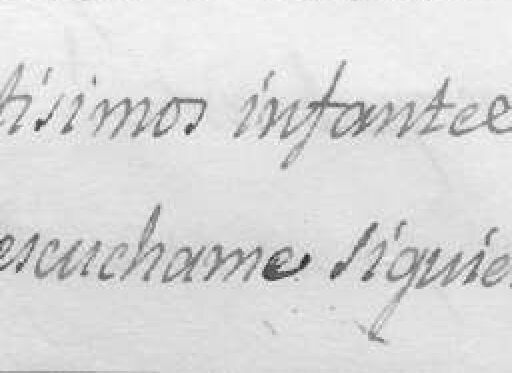 tisimos infantee
escuchame siguie